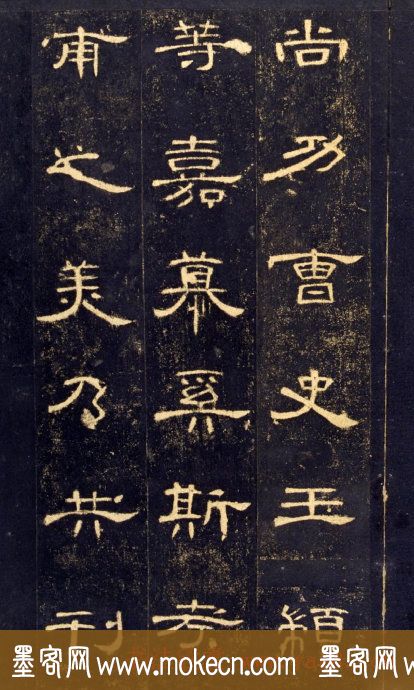 尚功曹史王顓
等嘉慕奚斯考
甫之美乃共刊
墨客网 www.mokecn.com 墨客网